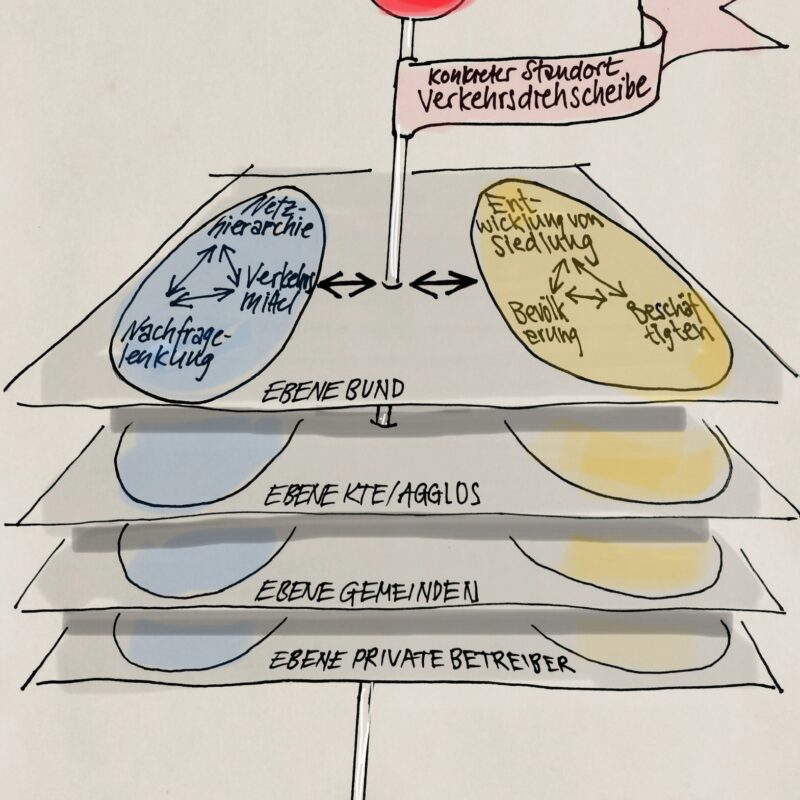 Konkreter Standort
Verkehrsdrehscheibe
Netz-
hierarchie
Verkehrs
mittel
Nachfrage-
lenkung
Ent-
wicklung von
Siedlung
Bevölk
erung
Beschäf
tigten
EBENE BUND
EBENE KTE/AGGLOS
EBENE GEMEINDEN
EBENE PRIVATE BETREIBER